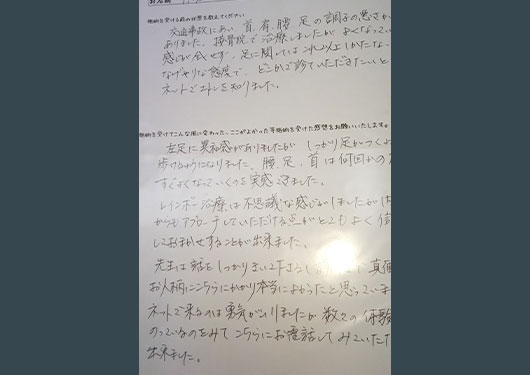 お名前
施術を受ける前の状態を教えてください
交通事故にあい 首、肩、腰、足の調子の悪さが
ありました。接骨院で治療しましたが よくなってい
感じが全くせず、足に関しては これ以上しかたな
なげやりな態度で、どこかで診ていただきたいと
ネットで を知りました。
施術を受けてこんな風に変わった、ここがよかった等施術を受けた感想をお願いいたします。
左足に異和感がありましたが しっかり足がつくよ
歩けるようになりました。腰、足、首は何回かの
すぐよくなっていくのを実感できました。
レインボー治療は不思議な感じがしましたが
からもアプローチしていただける点がとてもよく 信
しておまかせすることが出来ました。
先生は話をしっかりきいて下さる 真価
お人柄にこちらにかかり本当によかったと思っていま
ネットで来るのは勇気がいりましたが 数々の 体験
のっているのをみて こちらにお電話して みていただ
出来ました。